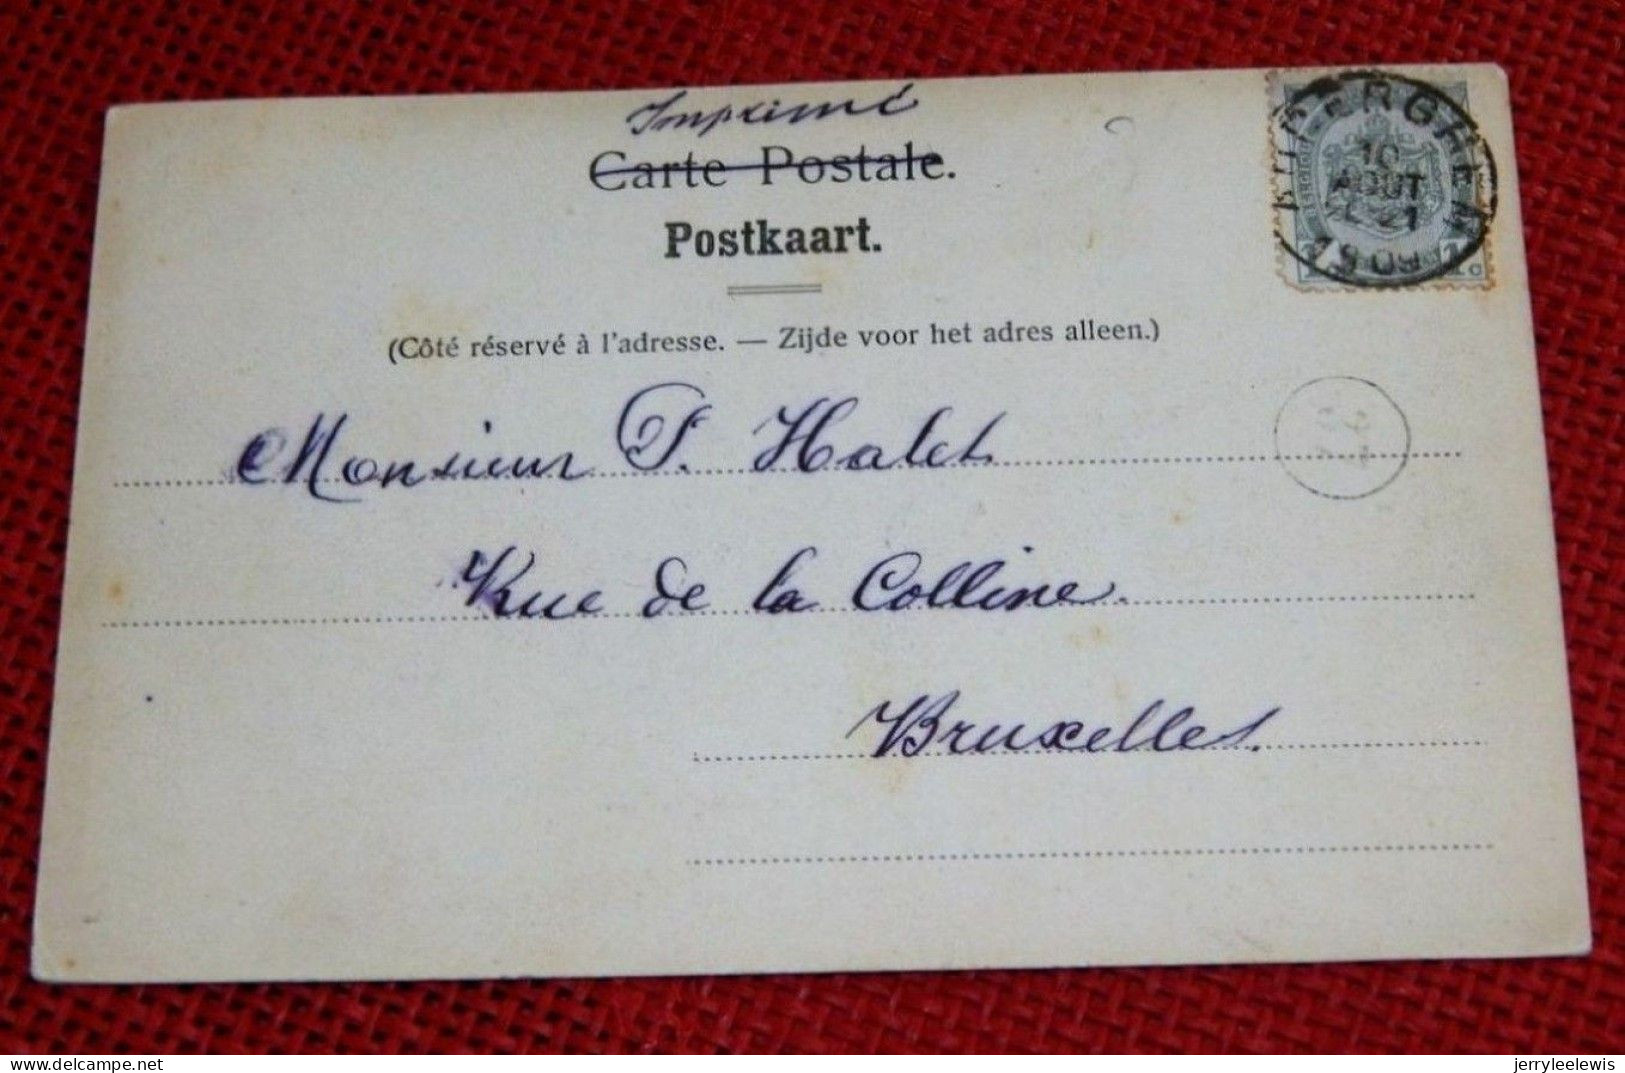 Imprimé
Carte Postale.
Postkaart.
(Côté réservé à l'adresse. — Zijde voor het adres alleen.)
10
AOUT
21
1909
1 1c
Monsieur P. Halet
Rue de la Colline.
Bruxelles.
delcampe.net
jerryleelewis